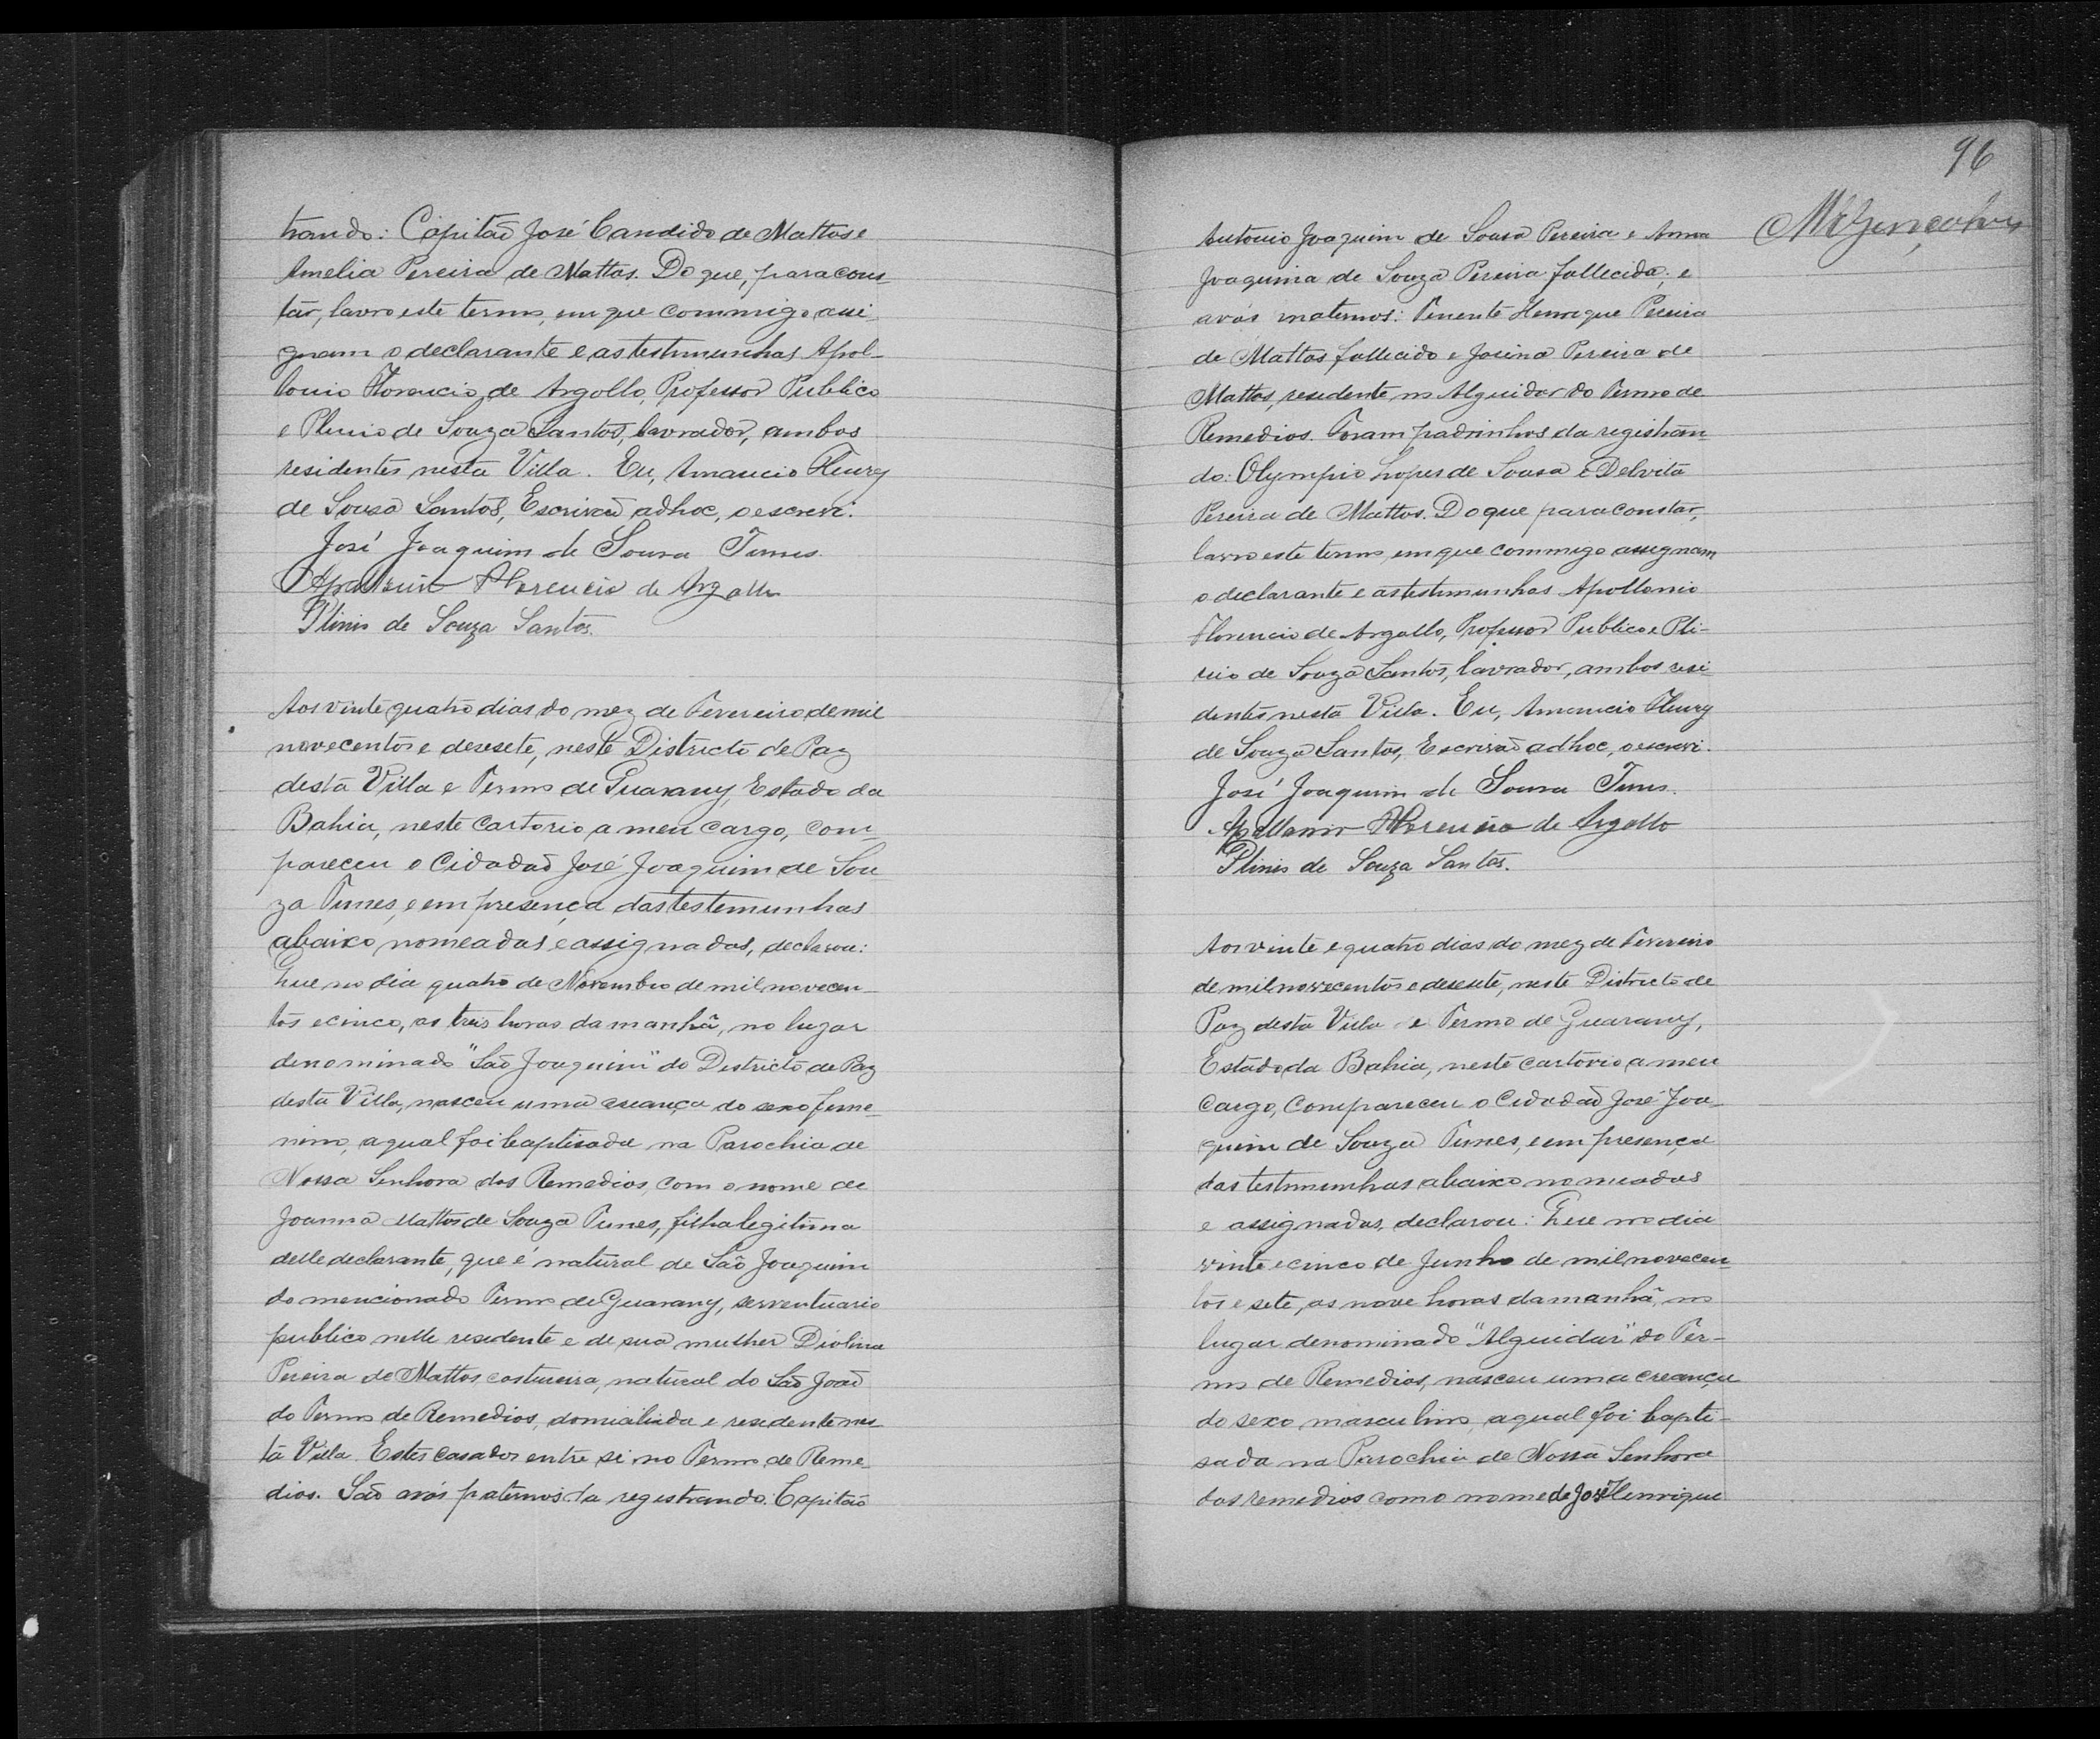 trando: Capitão José Candido de Mattos e
Amelia Pereira de Mattos. Do que, para cons-
tar, lavro este termo, em que commigo assi-
gnam o declarante e as testimunhas Apol-
lonio Florencio de Argollo, Professor Publico
e Plinio de Souza Santos, lavrador, ambos
residentes nesta Villa. Eu, Amancio Fleury
de Sousa Santos, Escrivão adhoc, o escrevi.
José Joaquim de Sousa Tunes
Apollonio Florencio de Argollo
Plinio de Souza Santos.
Aos vinte quatro dias do mez de Fevereiro de mil
novecentos e desesete, neste Districto de Paz
desta Villa e Termo de Guarany, Estado da
Bahia, neste Cartorio a meu cargo, com-
pareceu o Cidadão José Joaquim de Sou-
za Tunes, e em presença das testemunhas
abaixo nomeadas e assignadas, declarou:
Que no dia quatro de Novembro de mil novecen-
tos e cinco, as tres horas da manhã, no lugar
denominado "São Joaquim" do Districto de Paz
desta Villa, nasceu uma creança do sexo feme-
nino, a qual foi baptisada na Parochia de
Nossa Senhora dos Remedios, com o nome de
Joanna Mattos de Souza Tunes, filha legitima
delle declarante, que é natural de São Joaquim
do mencionado Termo de Guarany, serventuario
publico nelle residente e de sua mulher Diolina
Pereira de Mattos, costureira, natural do São João
do Termo de Remedios, domiciliada e residente nes-
ta Villa. Estes casados entre si no Termo de Reme-
dios. São avós paternos da registrando: Capitão
96
Antonio Joaquim de Sousa Pereira e Anna
Joaquina de Souza Pereira fallecida; e
avós maternos: Tenente Henrique Pereira
de Mattos fallecido e Josina Pereira de
Mattos, residente no Alguidar do Termo de
Remedios. Foram padrinhos da registran-
do: Olympio Lopes de Sousa e Delvita
Pereira de Mattos. Do que para constar,
lavro este termo, em que commigo assignam
o declarante e as testimunhas Apollonio
Florencio de Argollo, Professor Publico e Pli-
nio de Souza Santos, lavrador, ambos resi-
dentes nesta Villa. Eu, Amancio Fleury
de Souza Santos, Escrivão adhoc, o escrevi.
José Joaquim de Sousa Tunes.
Apollonio Florencio de Argollo
Plinio de Souza Santos.
Aos vinte e quatro dias do mez de Fevereiro
de mil novecentos e desesete, neste Districto de
Paz desta Villa e Termo de Guarany,
Estado da Bahia, neste cartorio a meu
cargo, compareceu o Cidadão José Joa-
quim de Souza Tunes, e em presença
das testimunhas abaixo nomeadas
e assignadas, declarou: Que no dia
vinte e cinco de Junho de mil novecen-
tos e sete, as nove horas da manhã, no
lugar denominado "Alguidar" do Ter-
mo de Remedios, nasceu uma creança
do sexo masculino, a qual foi bapti-
sada na Parochia de Nossa Senhora
dos remedios com o nome de José Henrique